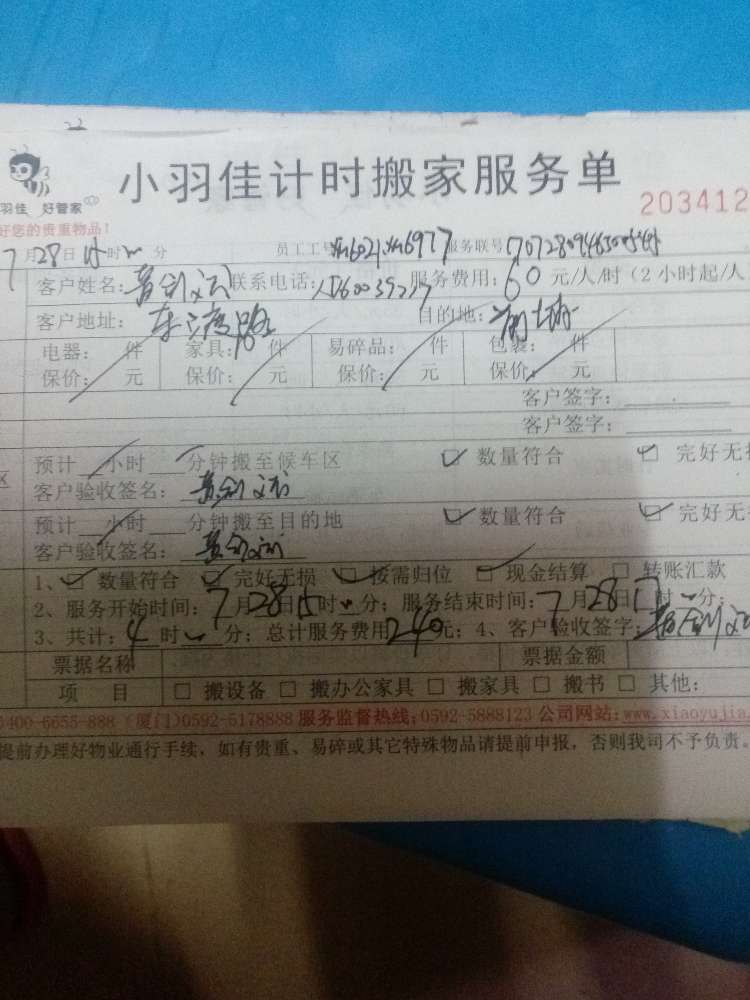 小羽佳计时搬家服务单
203412
羽佳 好管家
好您的贵重物品!
7月28日15时 分 员工工号 服务联号:
客户姓名: 联系电话: 服务费用:60元/人/时(2小时起/人
客户地址:东渡路 目的地:
电器: 件 家具:10件 易碎品: 件 包裹: 件
保价: 元 保价: 元 保价: 元 保价: 元
客户签字:
客户签字:
预计 小时 分钟搬至候车区 数量符合 完好无损
客户验收签名:
预计 小时 分钟搬至目的地 数量符合 完好无
客户验收签名:
1、 数量符合 完好无损 按需归位 现金结算 转账汇款
2、服务开始时间:7月28日15时 分;服务结束时间:7月28日17时 分;
3、共计:4时 分;总计服务费用240元;4、客户验收签字:
票据名称 票据金额
项 目 □ 搬设备 □ 搬办公家具 □ 搬家具 □ 搬书 □ 其他:
0400-6655-888(厦门)0592-5178888 服务监督热线:0592-5888123 公司网站:www.xiaoyujia.
提前办理好物业通行手续,如有贵重、易碎或其它特殊物品请提前申报,否则我司不予负责。